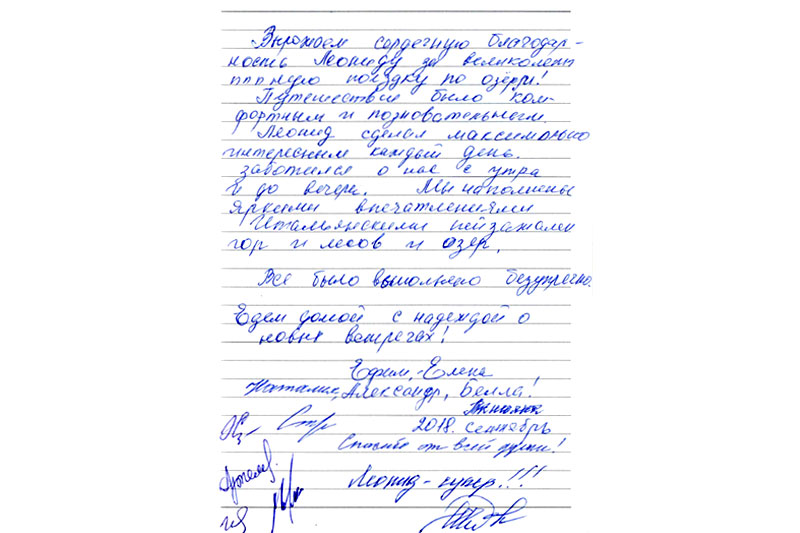 Выражаем сердечную благодар-
ность Леониду за великолепн
ную поездку по озёрам!
Путешествие было ком-
фортным и познавательным.
Леонид сделал максимально
интересным каждый день.
заботился о нас с утра
и до вечера. Мы наполнены
яркими впечатлениями
Итальянскими пейзажами
гор и лесов и озёр.
Все было выполнено безупречно.
Едем домой с надеждой о
новых встречах!
Ефим, Елена
Наталия, Александр, Белла!
Татьяна
2018. Сентябрь
Спасибо от всей души!
Леонид - супер!!!